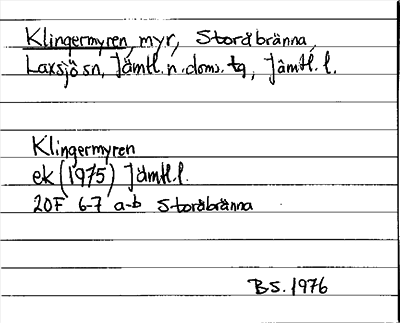 Klingermyren, myr, Storåbränna,
Laxsjö sn, Jämtl. n. doms. tg, Jämtl. l.
Klingermyren
ek (1975) Jämtl. l.
20F 6-7 a-b Storåbränna
B S. 1976